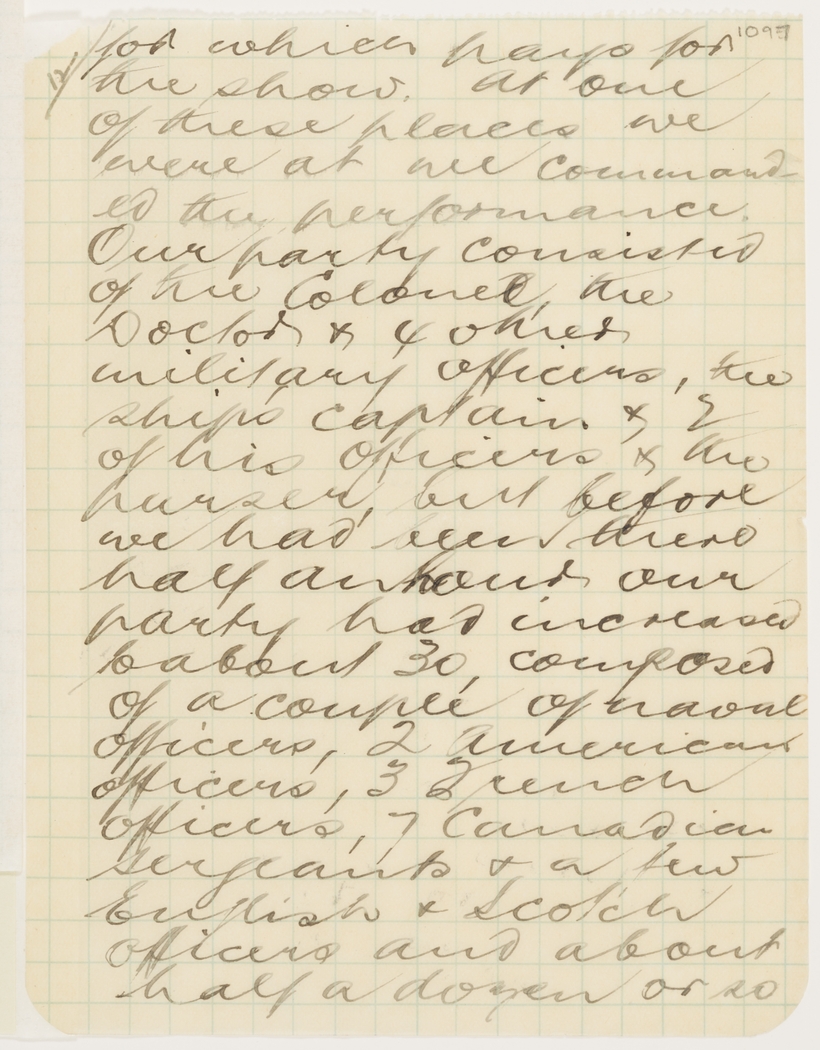 1097
12/
for which pays for
the show. At one
of these places we
were at we command-
ed the performance.
Our party consisted
of the Colonel, the
Doctor & 4 other
military officers, the
ships captain & 2
of his officers & the
purser, but before
we had been there
half an hour our
party had increased
to about 30, composed
of a couple of naval
officers, 2 American
officers, 3 French
officers, 7 Canadian
sergeants & a few
English & Scotch
officers and about
half a dozen or so